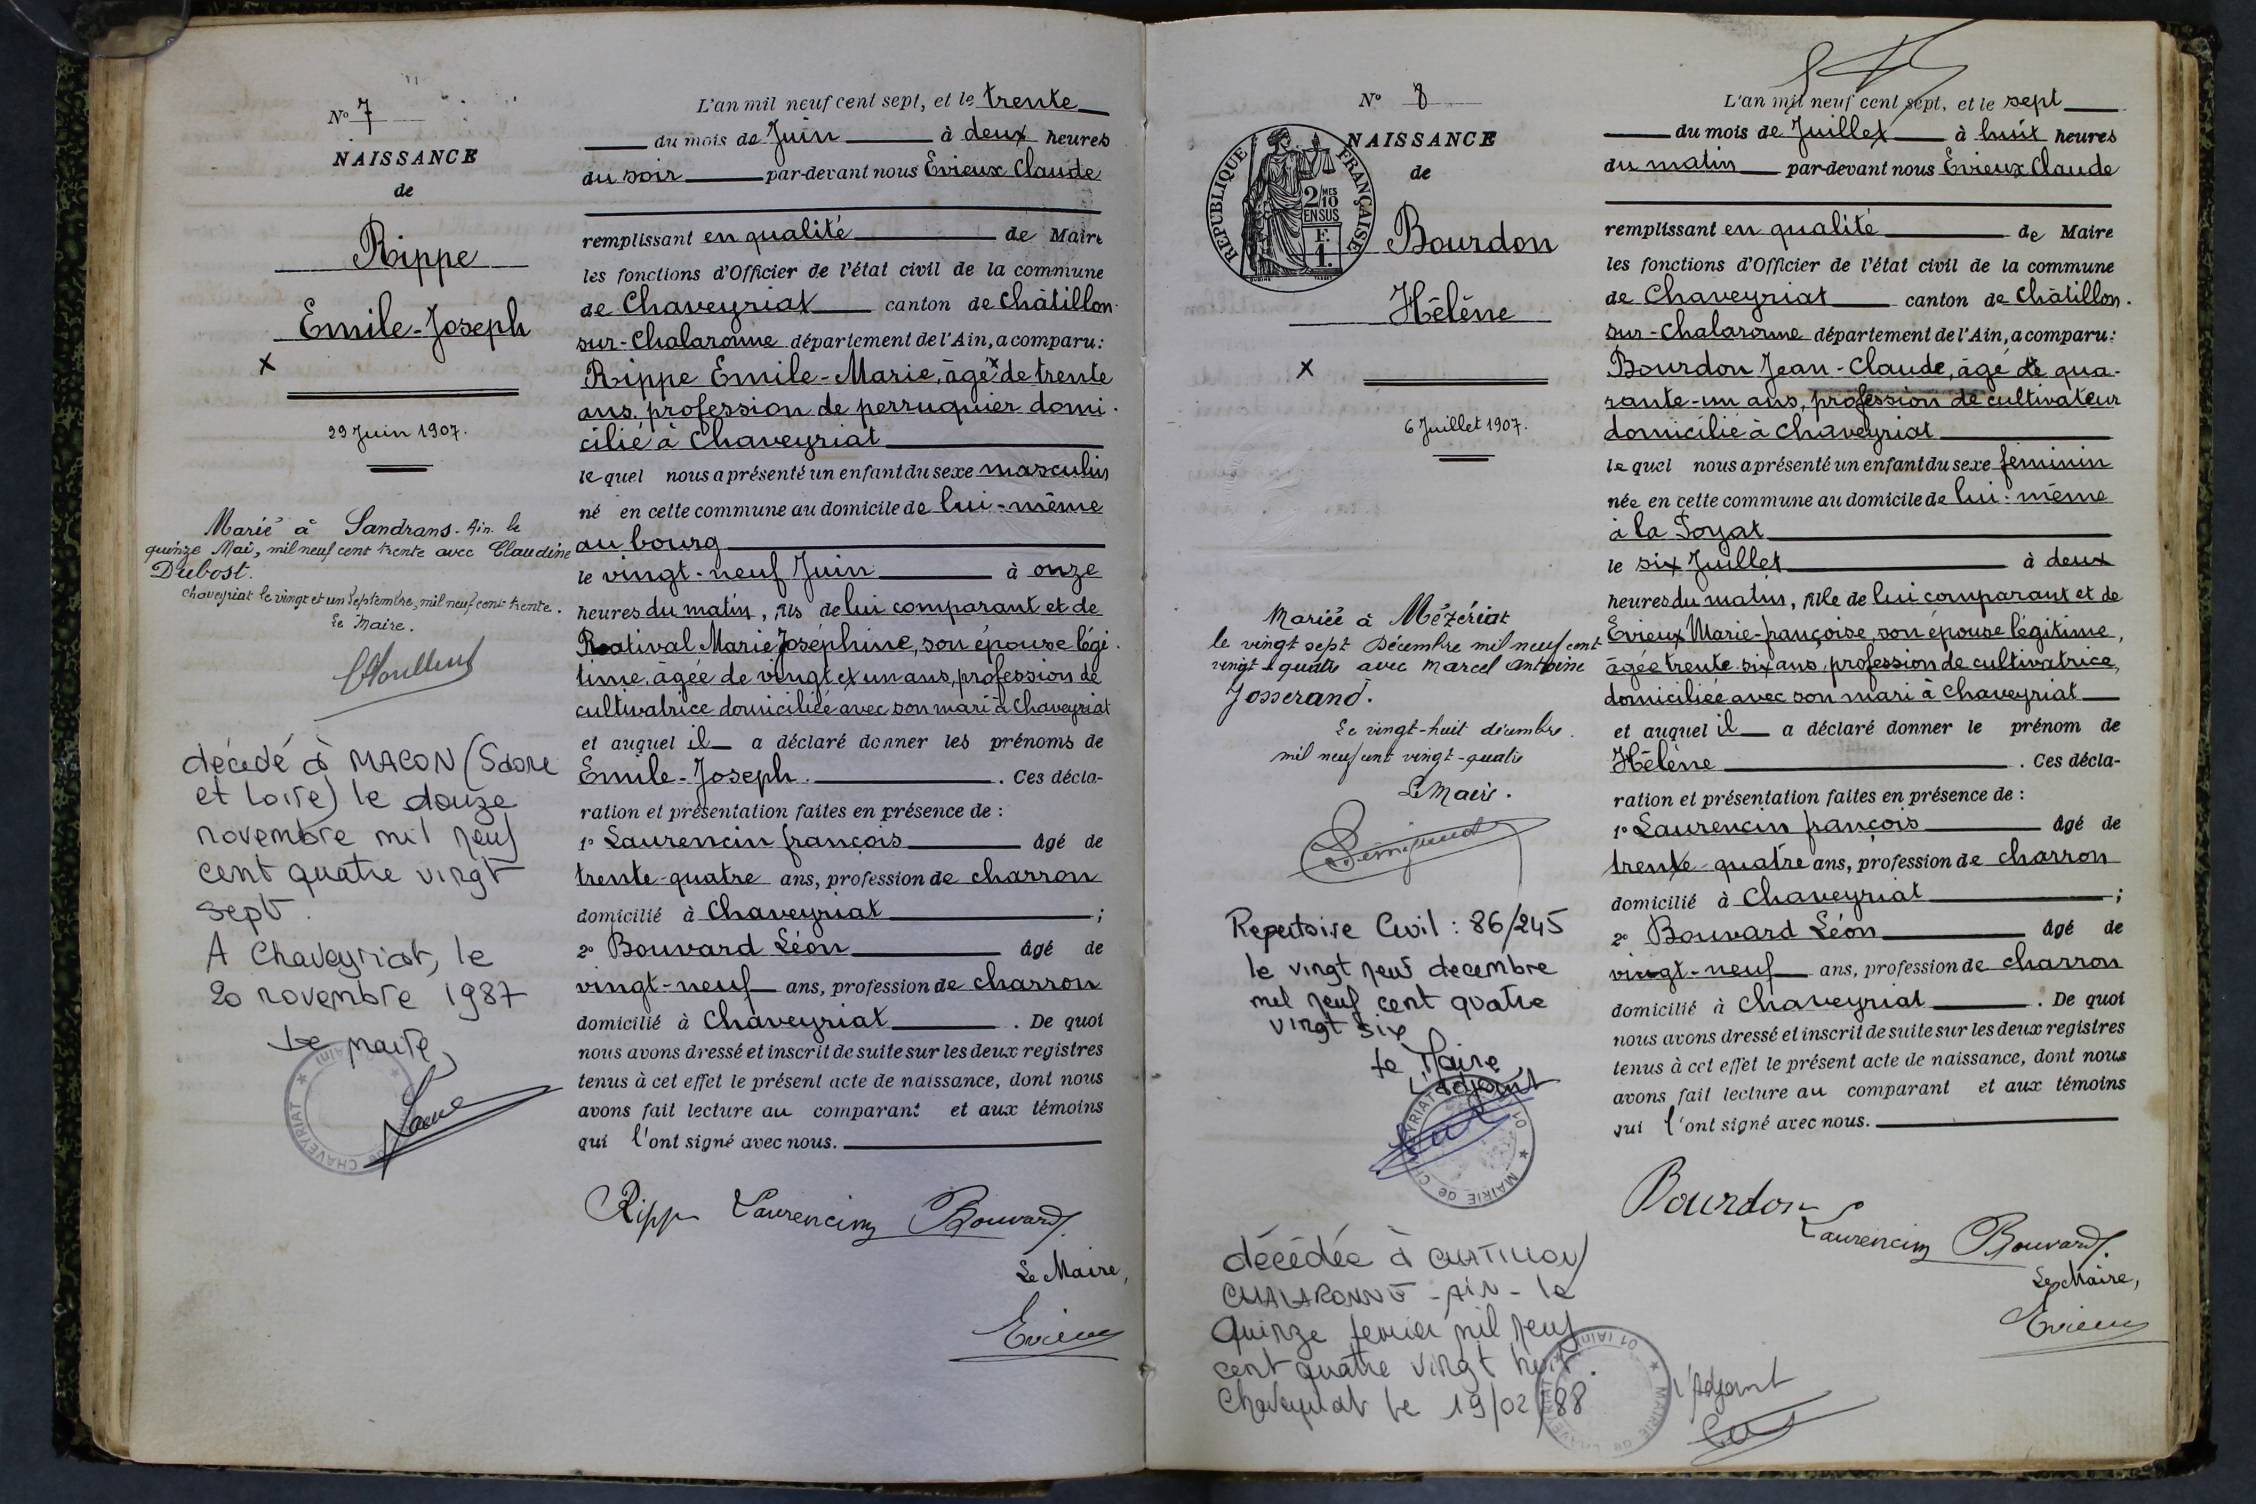 N° 7
NAISSANCE
de
Rippe
Emile-Joseph
x
29 Juin 1907.
Marié à Sandrans. Ain. le
quinze Mai, mil neuf cent trente avec Claudine
Dubost.
Chaveyriat le vingt et un Septembre, mil neuf cent trente.
Le Maire.
décédé à MACON (Saone
et Loire) le douze
novembre mil neuf
cent quatre vingt
sept.
A Chaveyriat, le
20 novembre 1987
Le Maire,
L'an mil neuf cent sept, et le trente
du mois de Juin à deux heures
du soir par-devant nous Evieux Claude
remplissant en qualité de Maire
les fonctions d'Officier de l'état civil de la commune
de Chaveyriat canton de Châtillon-
sur-Chalaronne département de l'Ain, a comparu:
Rippe Emile-Marie, âgé de trente
ans, profession de perruquier domi-
cilié à Chaveyriat
le quel nous a présenté un enfant du sexe masculin
né en cette commune au domicile de lui-même
au bourg
le vingt-neuf Juin à onze
heures du matin, fils de lui comparant et de
Ratival Marie Joséphine, son épouse légi-
time, âgée de vingt et un ans, profession de
cultivatrice domiciliée avec son mari à Chaveyriat
et auquel il a déclaré donner les prénoms de
Emile-Joseph. Ces décla-
ration et présentation faites en présence de :
1° Laurencin françois âgé de
trente-quatre ans, profession de charron
domicilié à Chaveyriat ;
2° Bouvard Léon âgé de
vingt-neuf ans, profession de charron
domicilié à Chaveyriat . De quoi
nous avons dressé et inscrit de suite sur les deux registres
tenus à cet effet le présent acte de naissance, dont nous
avons fait lecture au comparant et aux témoins
qui l'ont signé avec nous.
Rippe Laurencin Bouvard
Le Maire,
Evieux
N° 8
NAISSANCE
de
REPUBLIQUE FRANÇAISE
2/10 MES
EN SUS
F.
1.
Bourdon
Hélène
x
6 Juillet 1907.
Mariée à Mézériat
le vingt sept Décembre mil neuf cent
vingt-quatre avec Marcel Antoine
Josserand.
Le vingt-huit décembre
mil neuf cent vingt-quatre
Le Maire.
Repertoire Civil : 86/245
le vingt neuf decembre
mil neuf cent quatre
vingt six
Le Maire
L'adjoint
MAIRIE de CHAVEYRIAT 01
décédée à CHATILLON/
CHALARONNE - AIN - le
quinze fevrier mil neuf
cent quatre vingt huit.
Chaveyriat le 19/02/88
L'Adjoint
MAIRIE de CHAVEYRIAT 01 (Ain)
L'an mil neuf cent sept, et le sept
du mois de Juillet à huit heures
du matin par-devant nous Evieux Claude
remplissant en qualité de Maire
les fonctions d'Officier de l'état civil de la commune
de Chaveyriat canton de Châtillon-
sur-Chalaronne département de l'Ain, a comparu:
Bourdon Jean-Claude, âgé de qua-
rante-un ans, profession de cultivateur
domicilié à Chaveyriat
le quel nous a présenté un enfant du sexe féminin
née en cette commune au domicile de lui-même
à la Poyat
le six Juillet à deux
heures du matin, fille de lui comparant et de
Evieux Marie-françoise, son épouse légitime,
âgée trente-six ans, profession de cultivatrice,
domiciliée avec son mari à Chaveyriat
et auquel il a déclaré donner le prénom de
Hélène . Ces décla-
ration et présentation faites en présence de :
1° Laurencin françois âgé de
trente-quatre ans, profession de charron
domicilié à Chaveyriat ;
2° Bouvard Léon âgé de
vingt-neuf ans, profession de charron
domicilié à Chaveyriat . De quoi
nous avons dressé et inscrit de suite sur les deux registres
tenus à cet effet le présent acte de naissance, dont nous
avons fait lecture au comparant et aux témoins
qui l'ont signé avec nous.
Bourdon
Laurencin Bouvard
Le Maire,
Evieux